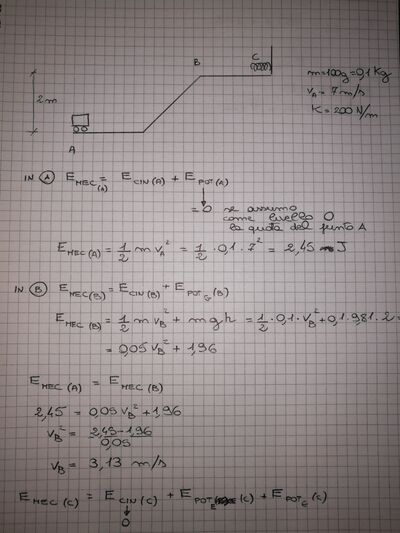 C
B
m=100g=0,1 Kg
v_A = 7 m/s
K = 200 N/m
2 m
A
IN Ⓐ E_MEC(A) = E_CIN(A) + E_POT(A)
↓
=0 se assumo
come livello 0
la quota del punto A
E_MEC(A) = 1/2 m v_A² = 1/2 · 0,1 · 7² = 2,45 J
IN Ⓑ E_MEC(B) = E_CIN(B) + E_POT_G(B)
E_MEC(B) = 1/2 m v_B² + m g h = 1/2 · 0,1 · v_B² + 0,1 · 9,81 · 2 =
= 0,05 v_B² + 1,96
E_MEC(A) = E_MEC(B)
2,45 = 0,05 v_B² + 1,96
v_B² = (2,45-1,96)/0,05
v_B = 3,13 m/s
E_MEC(C) = E_CIN(C) + E_POT_E(C) + E_POT_G(C)
↓
0